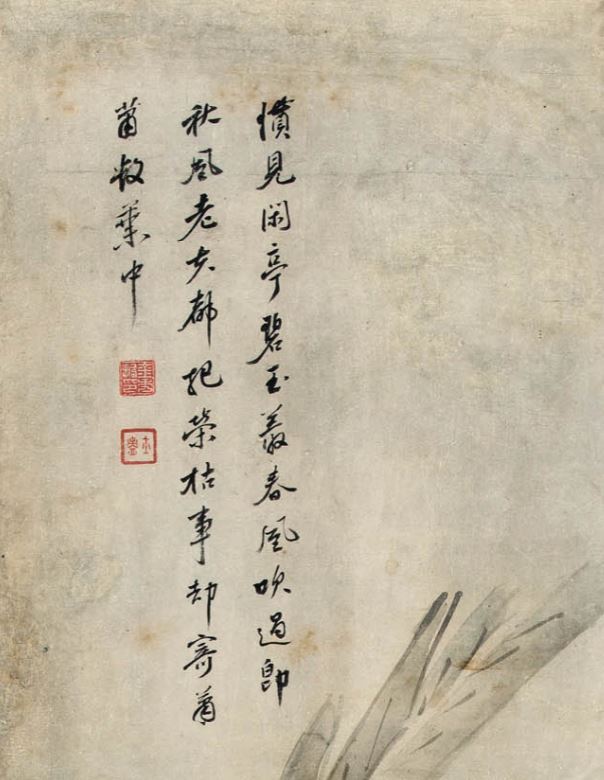 慣見閑亭碧玉叢春風吹過即
秋風老夫都把榮枯事却寄蕭
蕭敗葉中